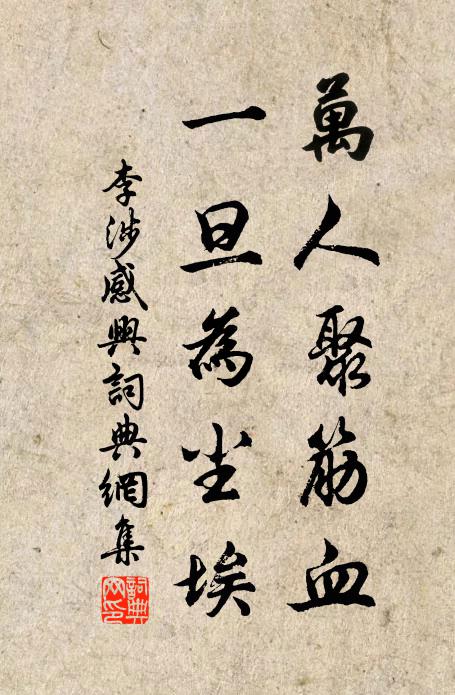 萬人聚筋血
一旦為尘埃
李涉感興詞典網集
詞典
网印